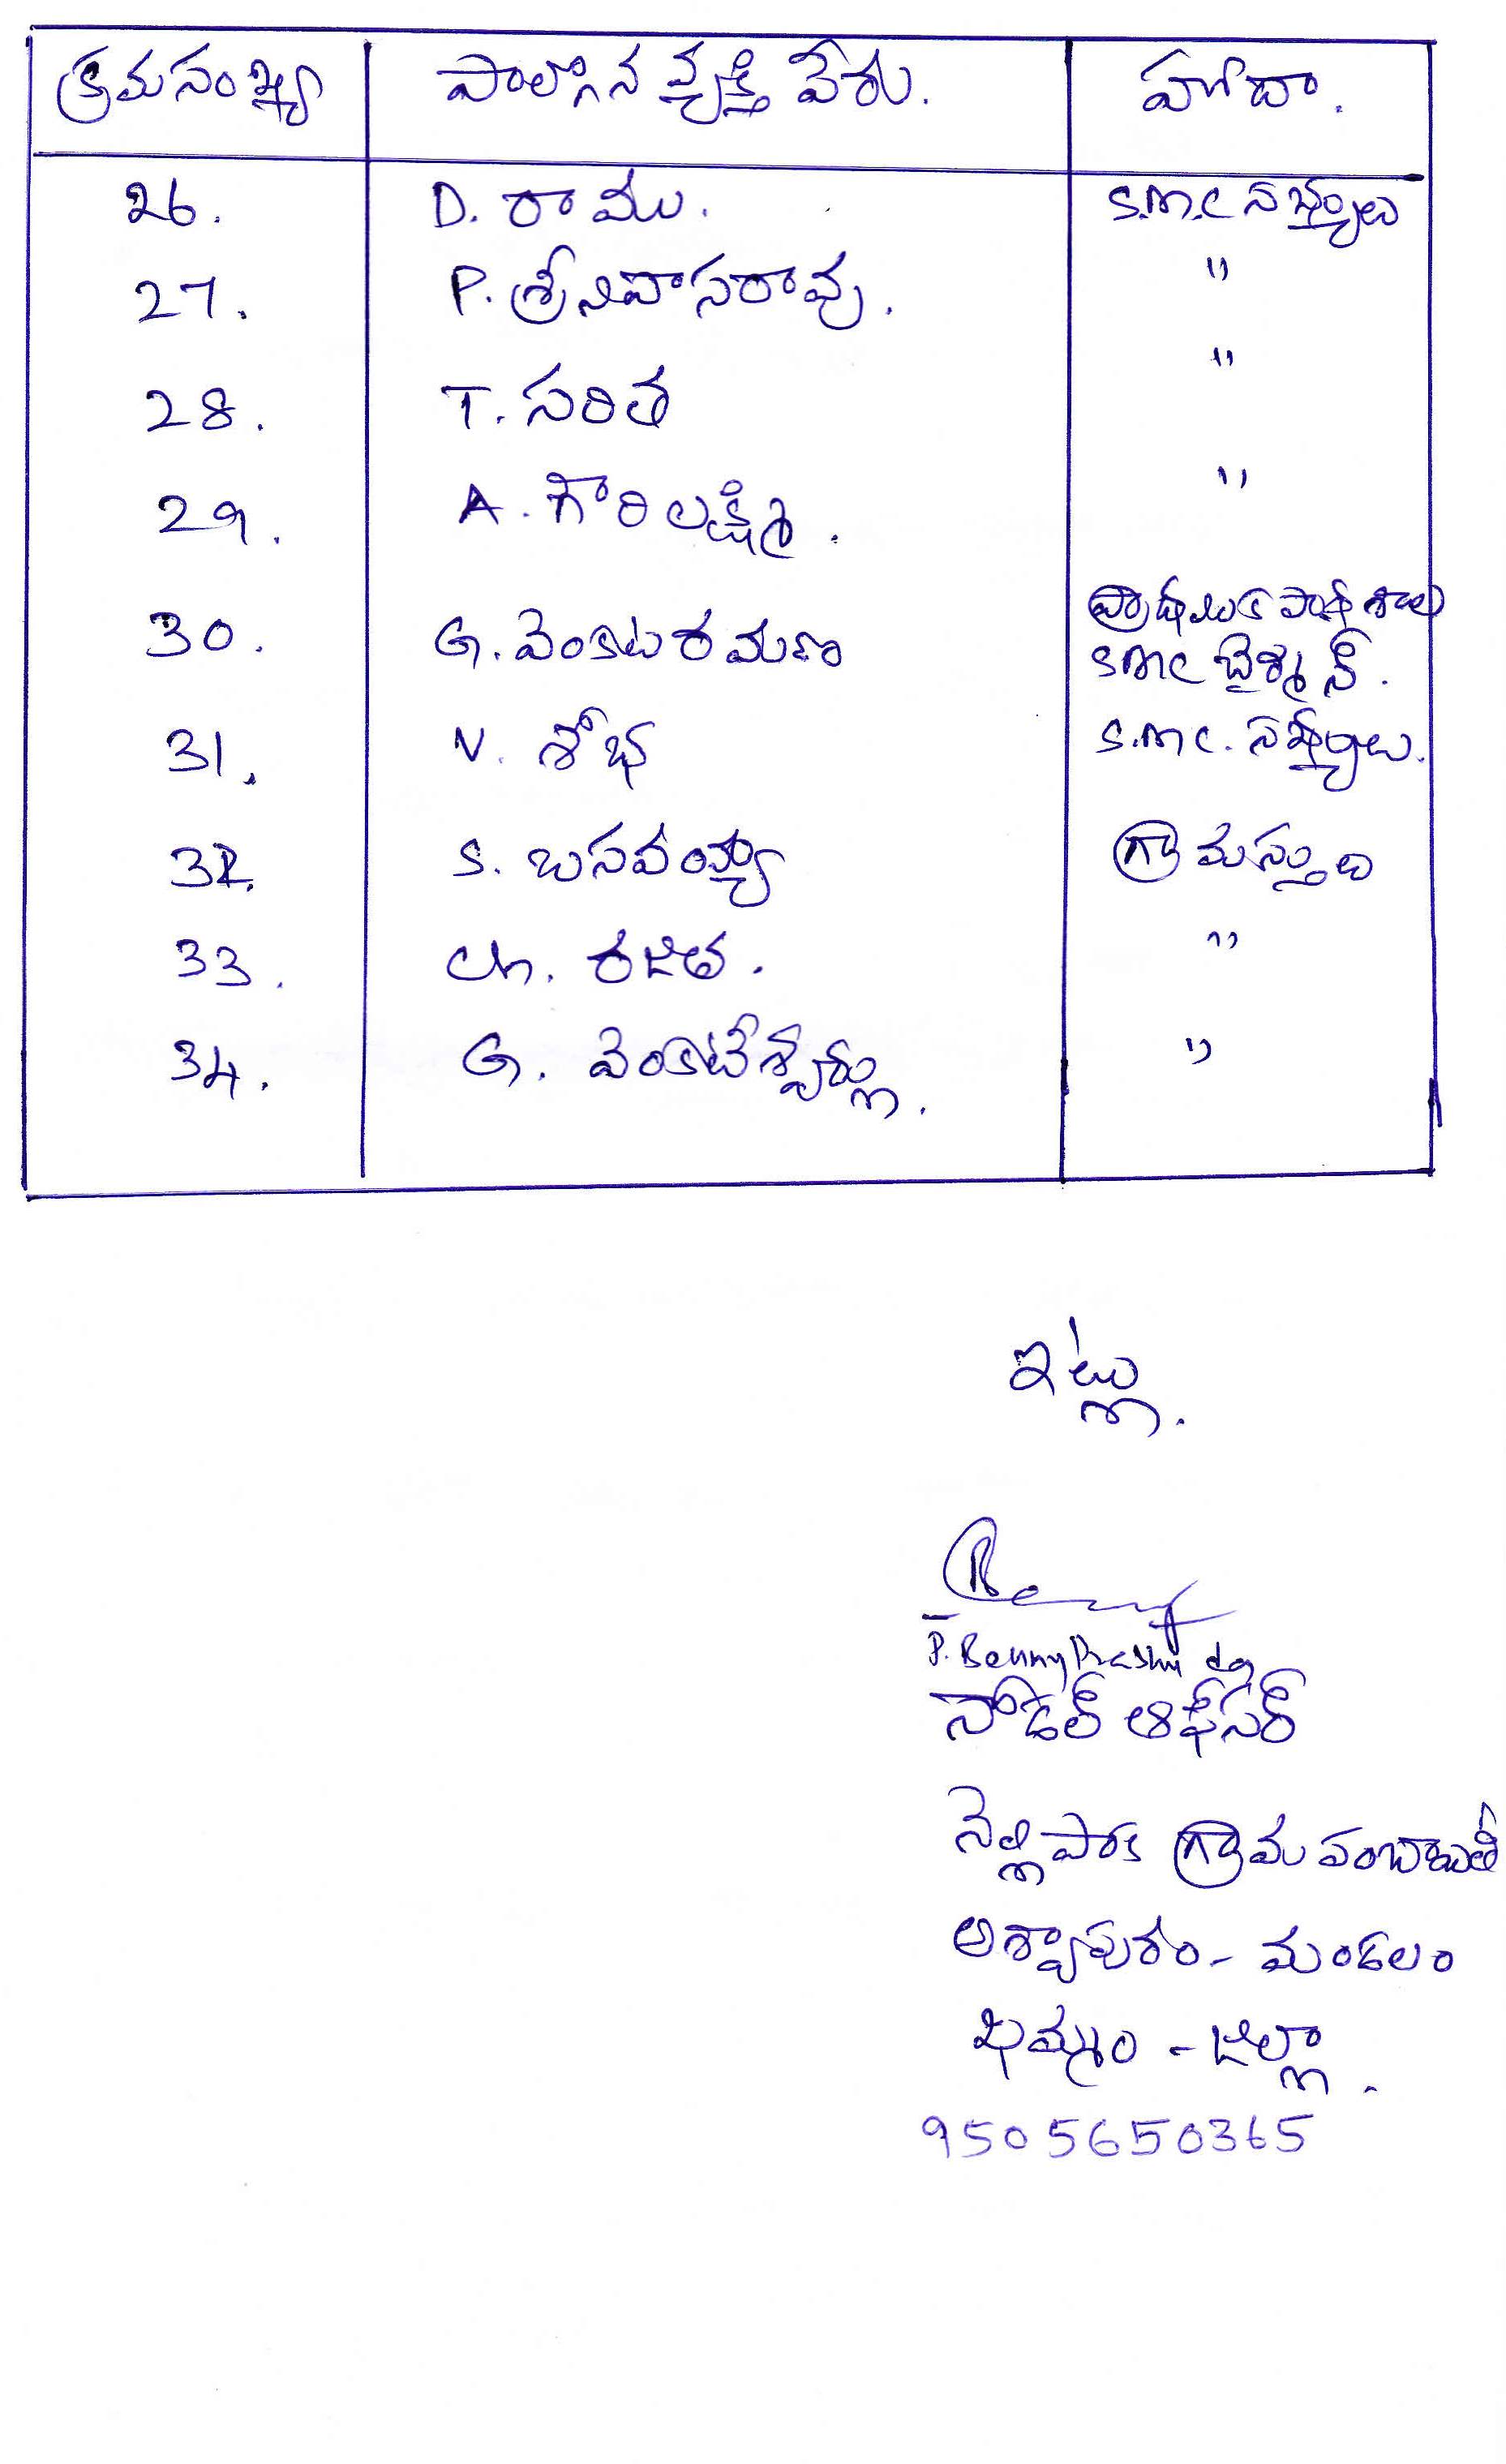 క్రమసంఖ్య పాల్గొన వ్యక్తి పేరు. హోదా.
26. D. రాము. S.M.C సభ్యులు
27. P. శ్రీనివాసరావు. "
28. T. సరిత "
29. A. గౌరి లక్ష్మి. "
30. G. వెంకటరమణ ప్రాధమిక పాఠశాల
SMC చైర్మన్.
31. N. శోభ S.M.C. సభ్యులు.
32. S. బసవయ్య గ్రామస్తుడు
33. Ch. రజిత. "
34. G. వెంకటేశ్వర్లు. "
ఇట్లు.
P. Benny
నోడల్ ఆఫీసర్
నెల్లిపాక గ్రామ పంచాయితీ
అశ్వాపురం - మండలం
ఖమ్మం - జిల్లా.
9505650365